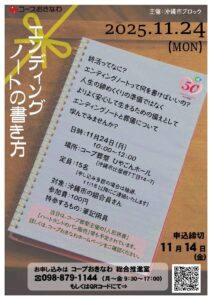 コープおきなわ
主催：沖縄市ブロック
2025.11.24
(MON)
エンディング
ノートの書き方
終活ってなに？
エンディングノートって何を書けばいいの？
人生の締めくくりの準備ではなく
よりよく安心して生きるための備えとして
エンディングノートと葬儀について
学んでみませんか？
日時：11月24日(月)
10:00～12:00
場所：コープ葬祭 ひやごんホール
定員：15名
対象：沖縄市の組合員さん
参加費：100円
持参するもの：筆記用具
申込締切
11月14日
(金)
お申し込みは コープおきなわ 総合推進室
098-879-1144 (月～金 9:30～17:00)
もしくはQRコードにて→